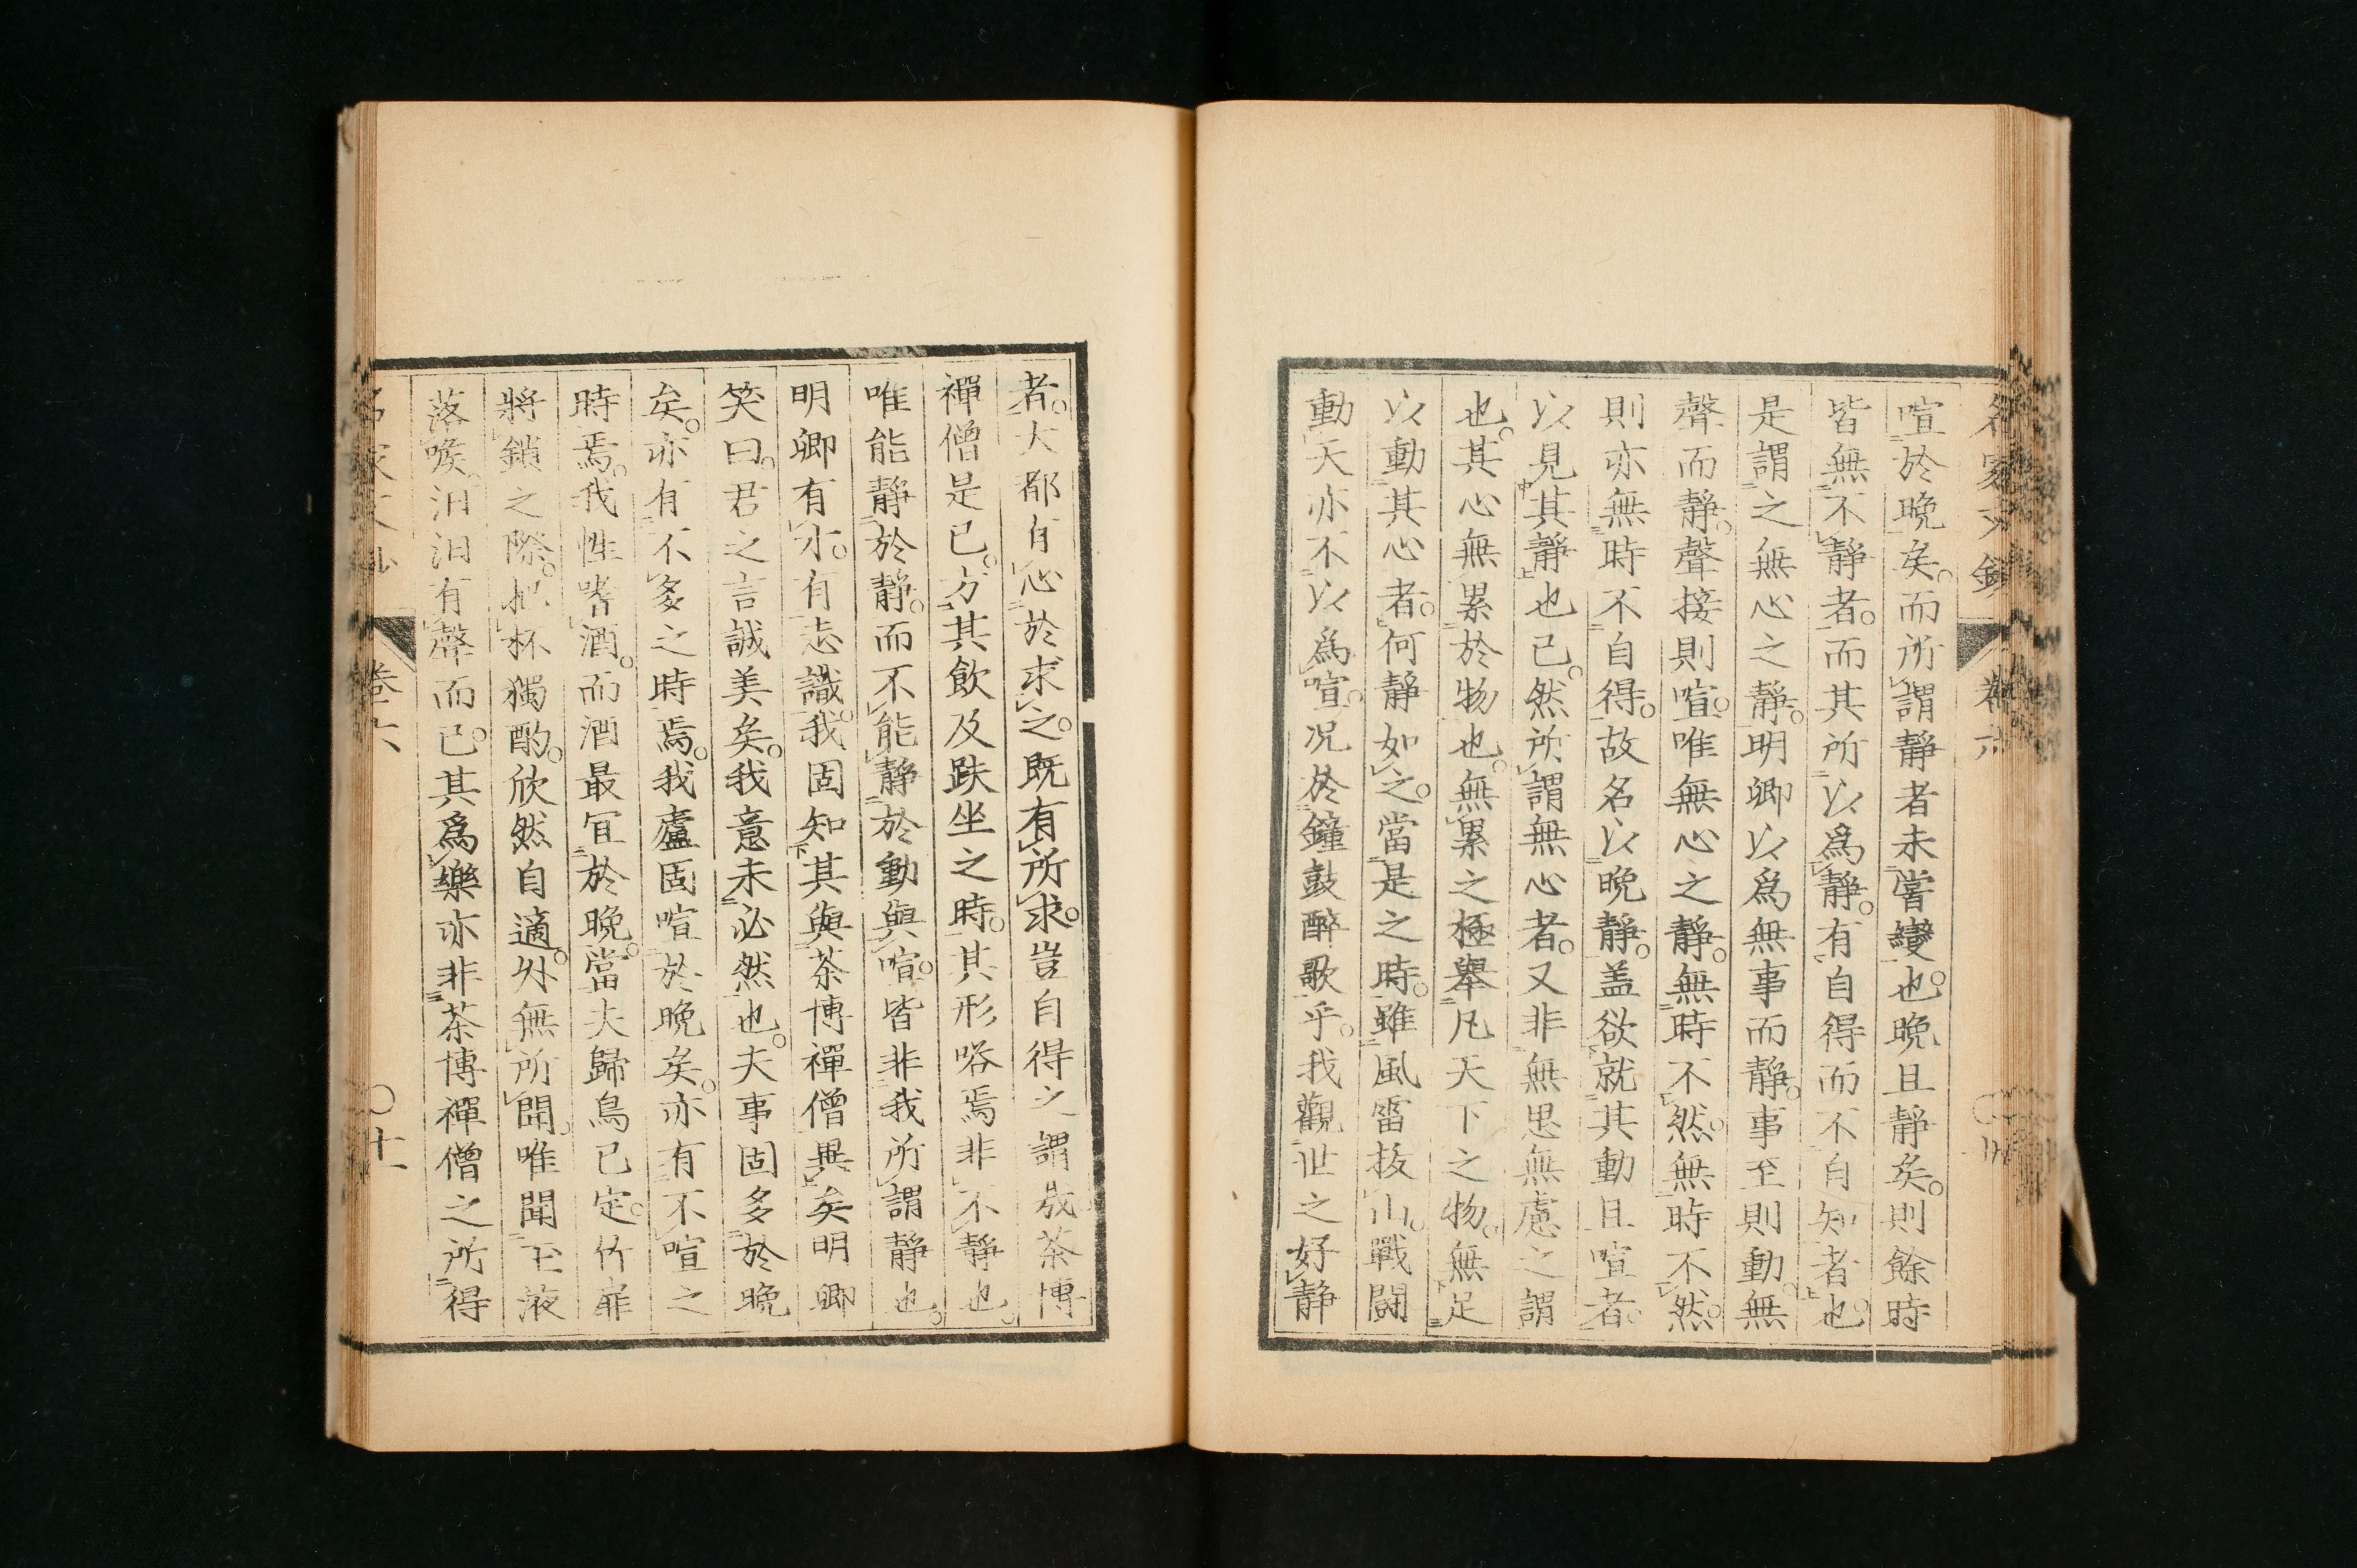 喧於晩矣。而所謂靜者未嘗變也。晩且靜矣。則餘時
皆無不靜者。而其所以爲靜。有自得而不自知者也。
是謂之無心之靜。明卿以爲無事而靜。事至則動。無
聲而靜。聲接則喧。唯無心之靜。無時不然。無時不然。
則亦無時不自得。故名以晩靜。盖欲就其動且喧者。
以見其靜也已。然所謂無心者。又非無思無慮之謂
也。其心無累於物也。無累之極。舉凡天下之物。無足
以動其心者。何靜如之。當是之時。雖風雷拔山。戰鬪
動天亦不以爲喧。况於鐘鼓醉歌乎。我觀世之好靜
者。大都有心於求之。既有所求。豈自得之謂哉茶博
禪僧是已。方其飲及趺坐之時。其形嗒焉非不靜也。
唯能靜於靜。而不能靜於動與喧。皆非我所謂靜也。
明卿有才。有志識。我固知其與茶博禪僧異矣明卿
笑曰。君之言誠美矣。我意未必然也。夫事固多於晩
矣。亦有不多之時焉。我廬固喧於晩矣。亦有不喧之
時焉。我性嗜酒。而酒最宜於晩。當夫歸鳥已定。竹扉
將鎖之際。把杯獨酌。欣然自適。外無所聞。唯聞玉液
落喉汩汩有聲而已。其爲樂亦非茶博禪僧之所得
名家文鈔 卷六 〇十一